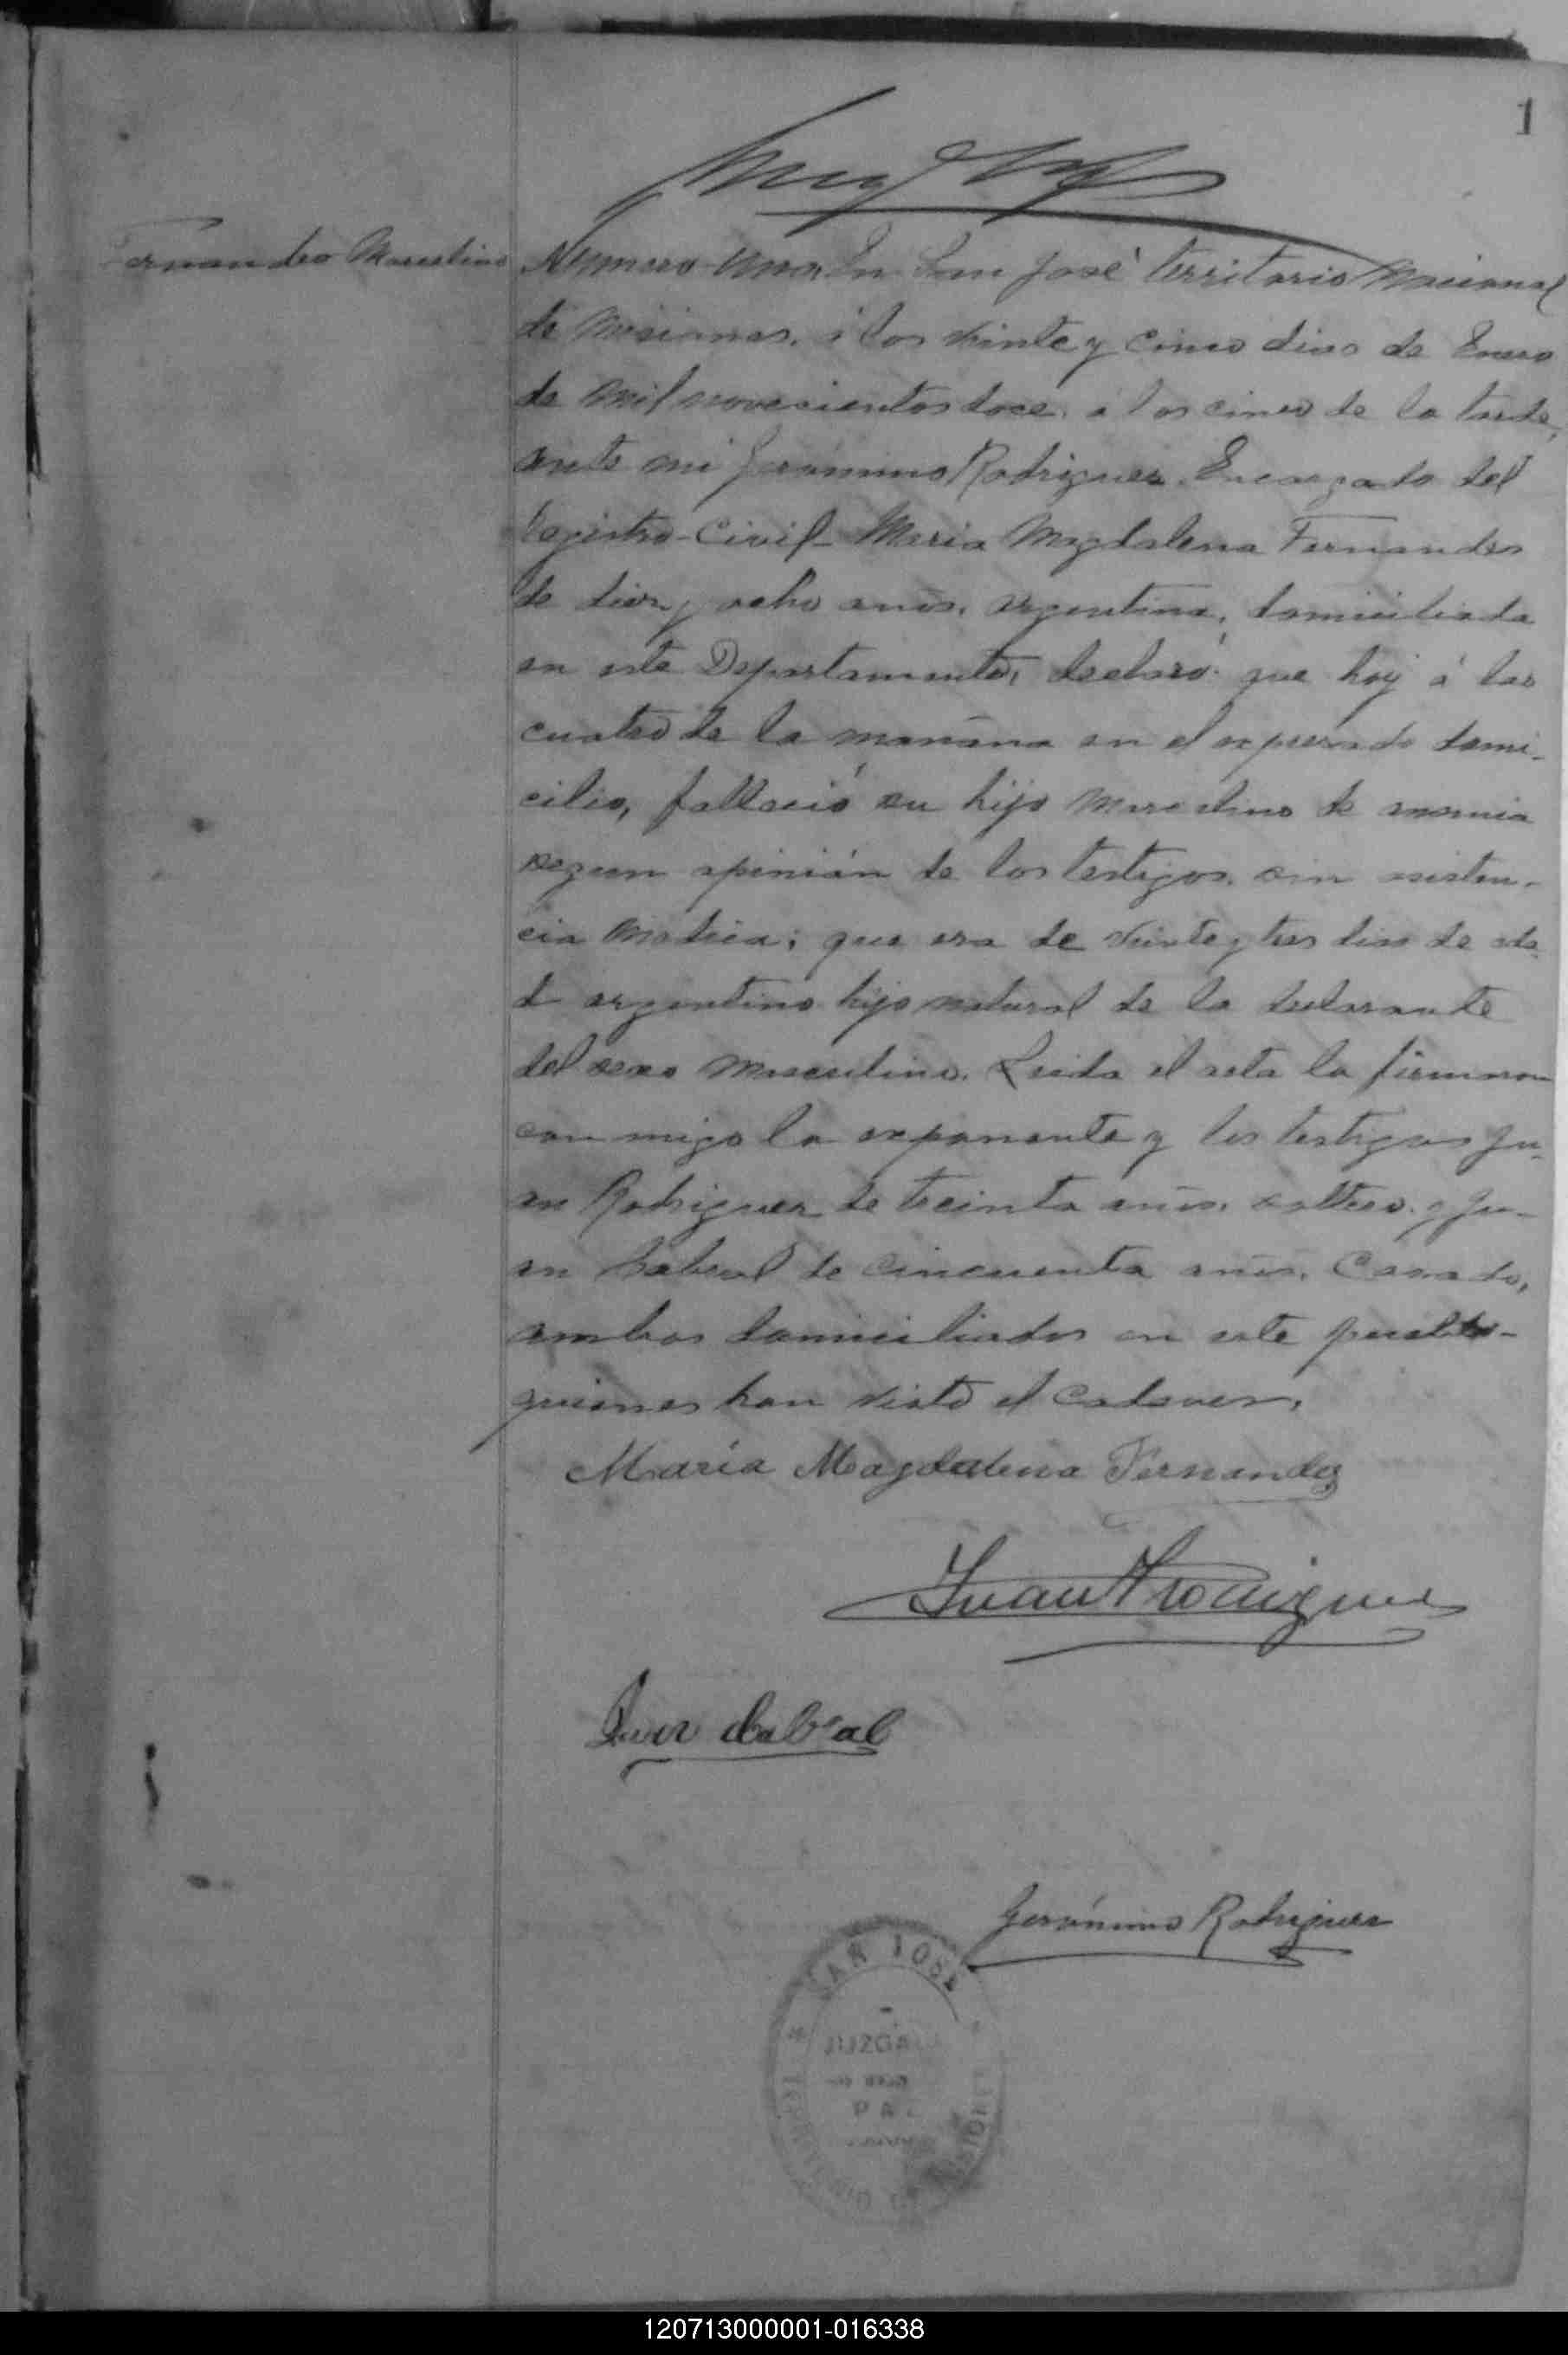 1
Fernandes Marcelino
Numero uno, En San José territorio Nacional
de Misiones, á los veinte y cinco dias de Enero
de mil novecientos doce, á las cinco de la tarde,
ante mi Jerónimo Rodriguez, Encargado del
Registro Civil - Maria Magdalena Fernandes
de diez y ocho anos, argentina, domiciliada
en este Departamento, declaró: que hoy á las
cuatro de la manana en el expresado domi-
cilio, falleció su hijo Marcelino de anemia
segun opinión de los testigos, sin asisten-
cia medica; que era de veinte y tres dias de eda-
d argentino hijo natural de la declarante
del sexo masculino. Leida el acta la firmaron
con migo la exponente y los testigos Ju-
an Rodriguez de treinta anos, soltero, y Ju-
an Cabral de cincuenta anos, Casado,
ambos domiciliados en este pueblo-
quienes han visto el cadaver.
María Magdalena Fernandez
Juan Rodriguez
Juan Cabral
Jerónimo Rodriguez
SAN JOSE
JUZGA
PAZ
120713000001-016338